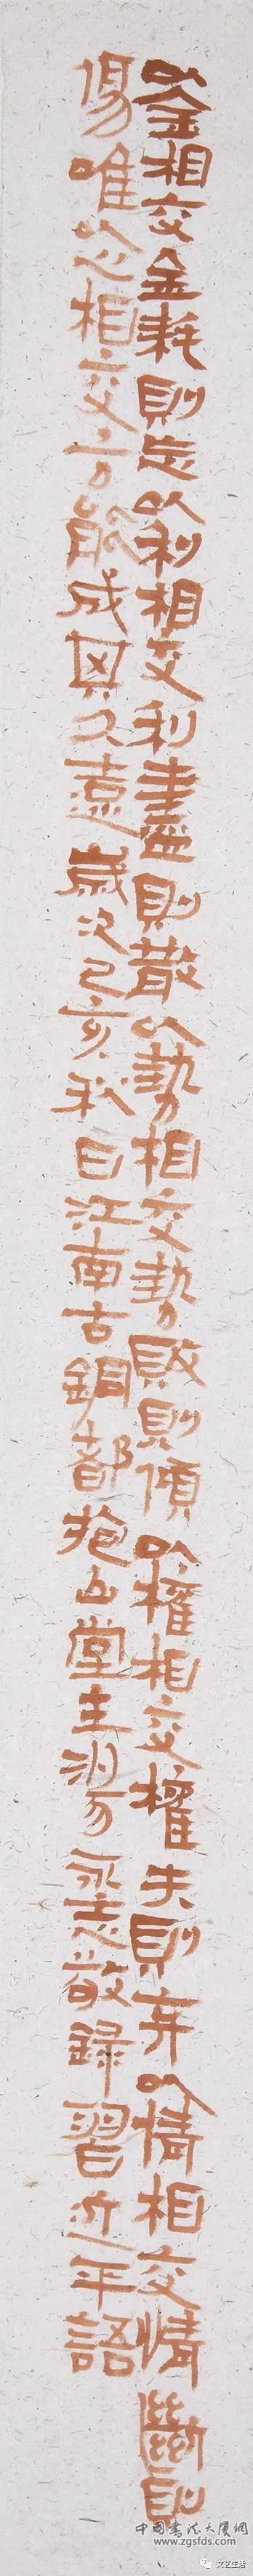 以金相交金耗則忘以利相交利盡則散以勢相交勢敗則傾以權相交權失則弃以情相交情斷則
傷唯以心相交方能成其久遠歲次己亥秋日江南古銅都抱山堂主湯永志敬録習近平語
中國書法大廈網
www.zgsfds.com
文艺生活